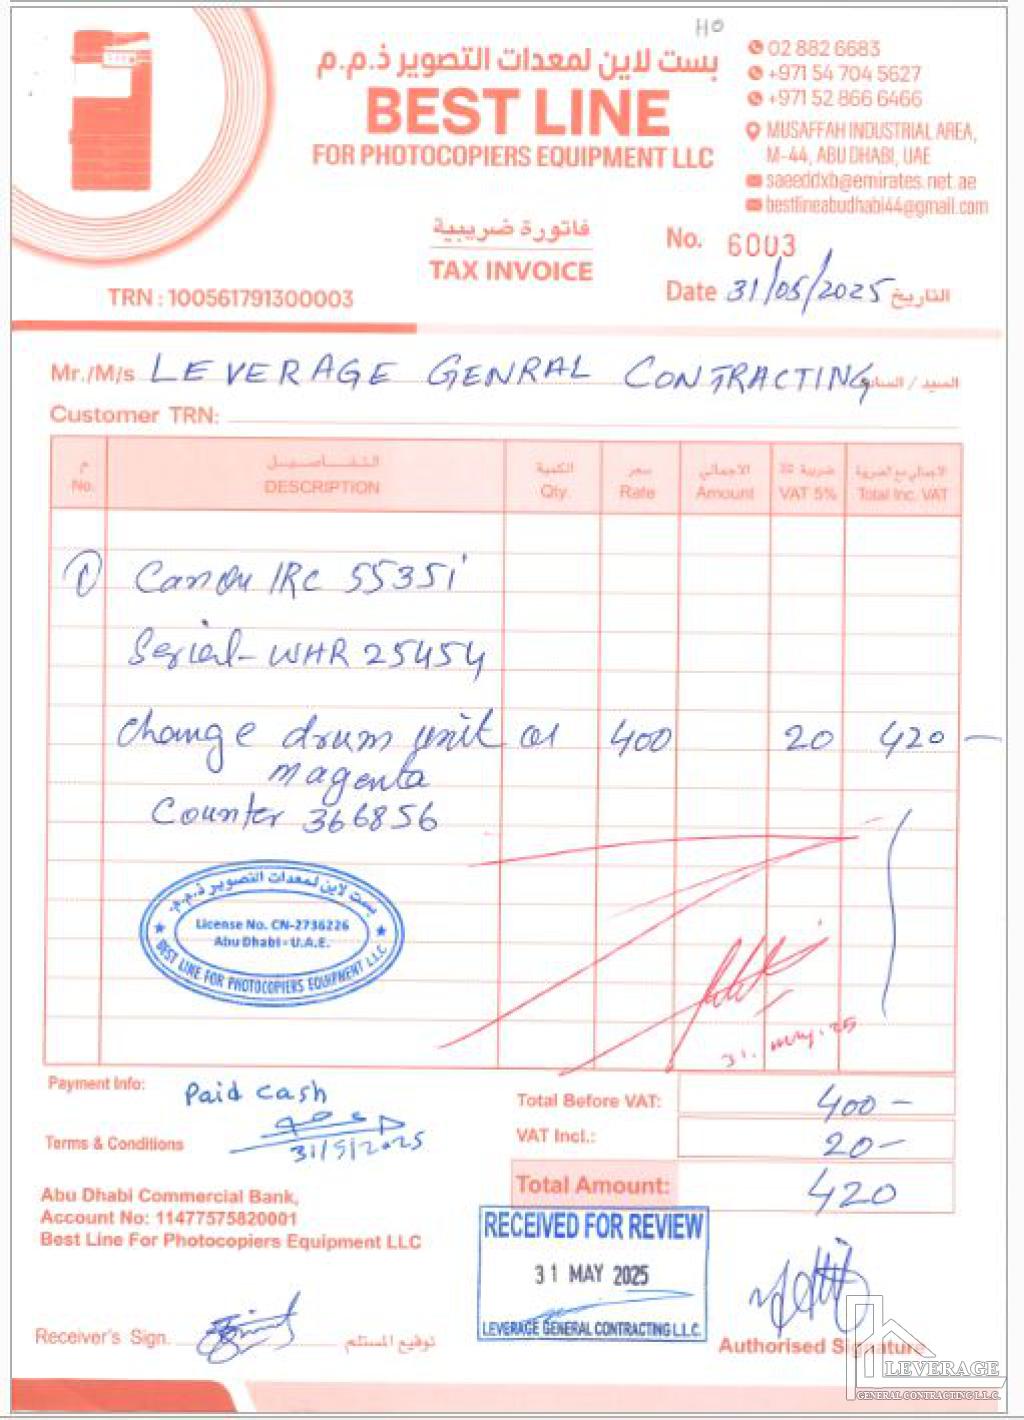 HO
بست لاين لمعدات التصوير ذ.م.م
BEST LINE
FOR PHOTOCOPIERS EQUIPMENT LLC
02 882 6683
+971 54 704 5627
+971 52 866 6466
MUSAFFAH INDUSTRIAL AREA,
M-44, ABU DHABI, UAE
saeeddxb@emirates.net.ae
bestlineabudhabi44@gmail.com
فاتورة ضريبية
TAX INVOICE
No. 6003
Date 31/05/2025 التاريخ
TRN : 100561791300003
Mr./M/s LEVERAGE GENRAL CONTRACTING السيد /
Customer TRN:
م التفاصيل الكمية سعر الاجمالي ضريبة 5% الاجمالي مع الضريبة
No. DESCRIPTION Qty. Rate Amount VAT 5% Total Inc. VAT
1 Canon IRC 5535i
Serial- WHR 25454
Change drum unit 01 400 20 420 —
magenta
Counter 366856
بست لاين لمعدات التصوير ذ.م.م.
License No. CN-2736226
Abu Dhabi - U.A.E.
BEST LINE FOR PHOTOCOPIERS EQUIPMENT L.L.C
31. may. 25
Payment Info: Paid cash
31/5/2025
Terms & Conditions
Total Before VAT: 400 —
VAT Incl.: 20 —
Total Amount: 420
Abu Dhabi Commercial Bank,
Account No: 11477575820001
Best Line For Photocopiers Equipment LLC
RECEIVED FOR REVIEW
31 MAY 2025
LEVERAGE GENERAL CONTRACTING L.L.C.
Receiver's Sign. توقيع المستلم
Authorised Signature
LEVERAGE
GENERAL CONTRACTING L.L.C.